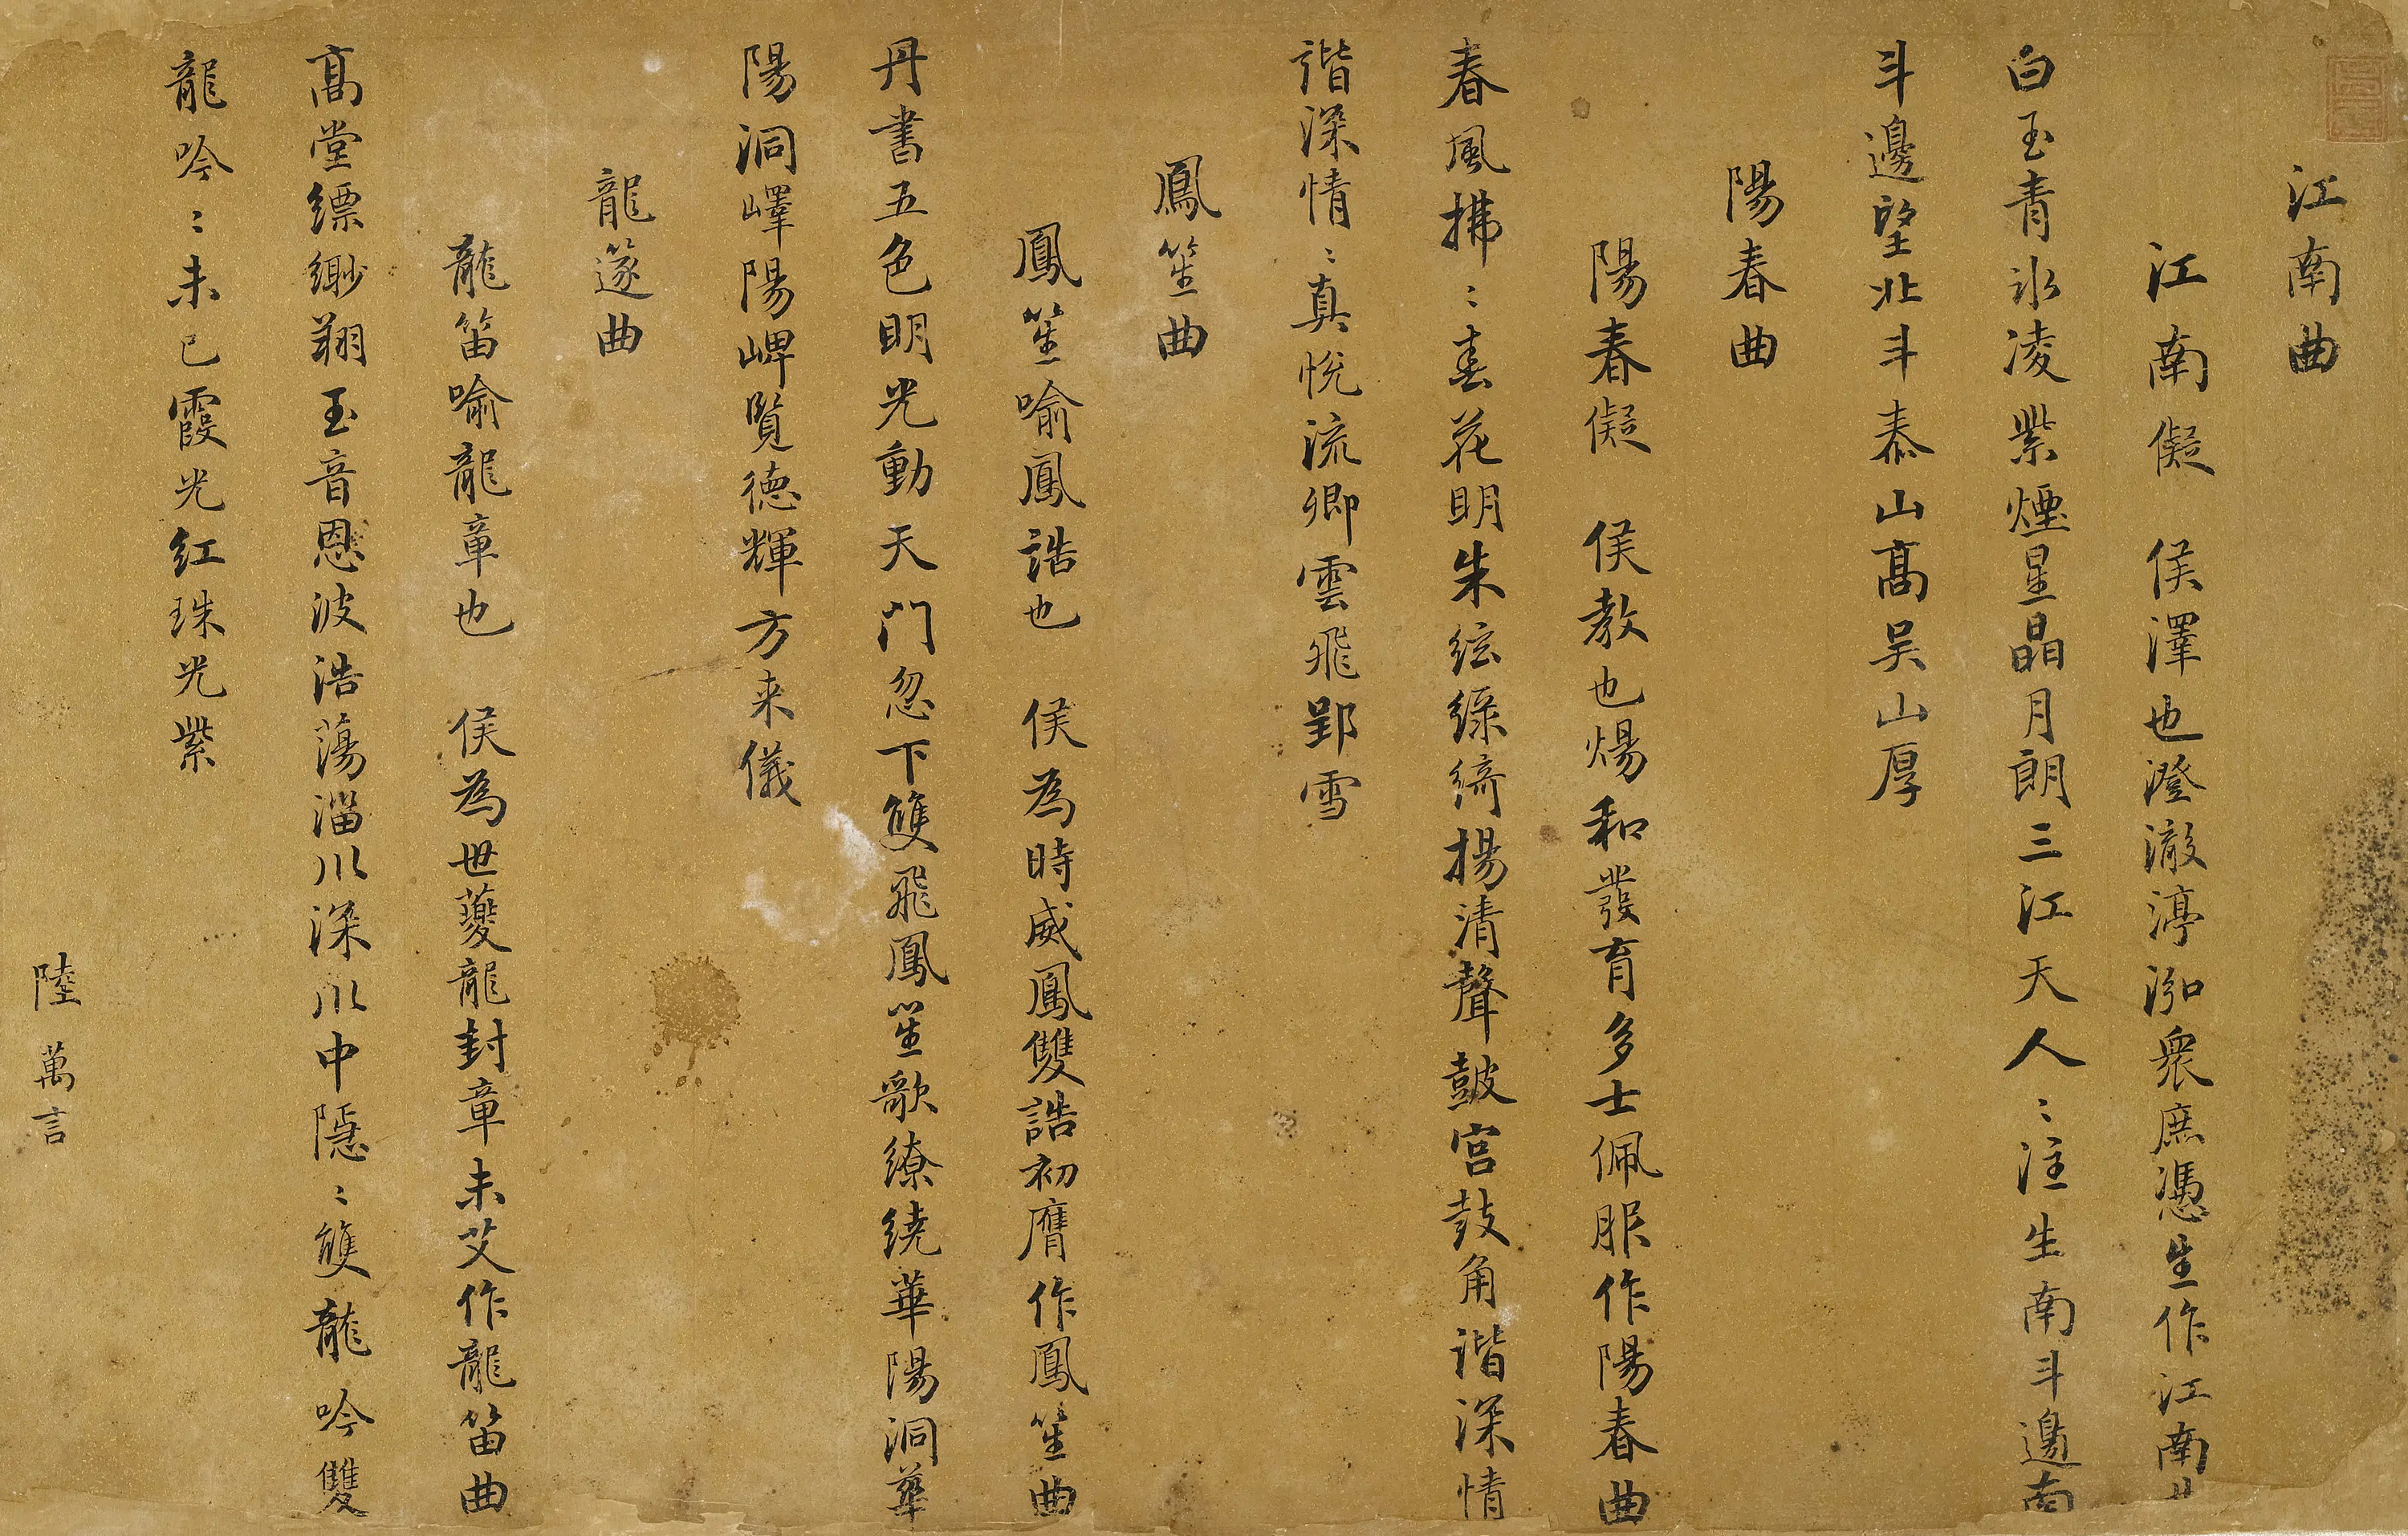 江南曲
江南儗　侯澤也澄澈渟泓衆庶憑生作江南曲
白玉青冰凌紫煙星晶月朗三江天人〻注生南斗邊南
斗邊望北斗泰山高吴山厚
陽春曲
陽春儗　侯教也煬和發育多士佩服作陽春曲
春風拂〻春花明朱絃綠綺揚清聲皷宫鼓角諧深情
諧深情〻真悦流卿雲飛郢雪
鳳笙曲
鳳笙喻鳳誥也　侯為時威鳳雙誥初膺作鳳笙曲
丹書五色明光動天門忽下雙飛鳳笙歌繚繞華陽洞華
陽洞嶧陽崥覽德輝方来儀
龍篴曲
龍笛喻龍章也　侯為世夔龍封章未艾作龍笛曲
高堂縹緲翔玉音恩波浩蕩淄川深川中隱〻雙龍吟雙
龍吟〻未已霞光紅珠光紫
陸萬言